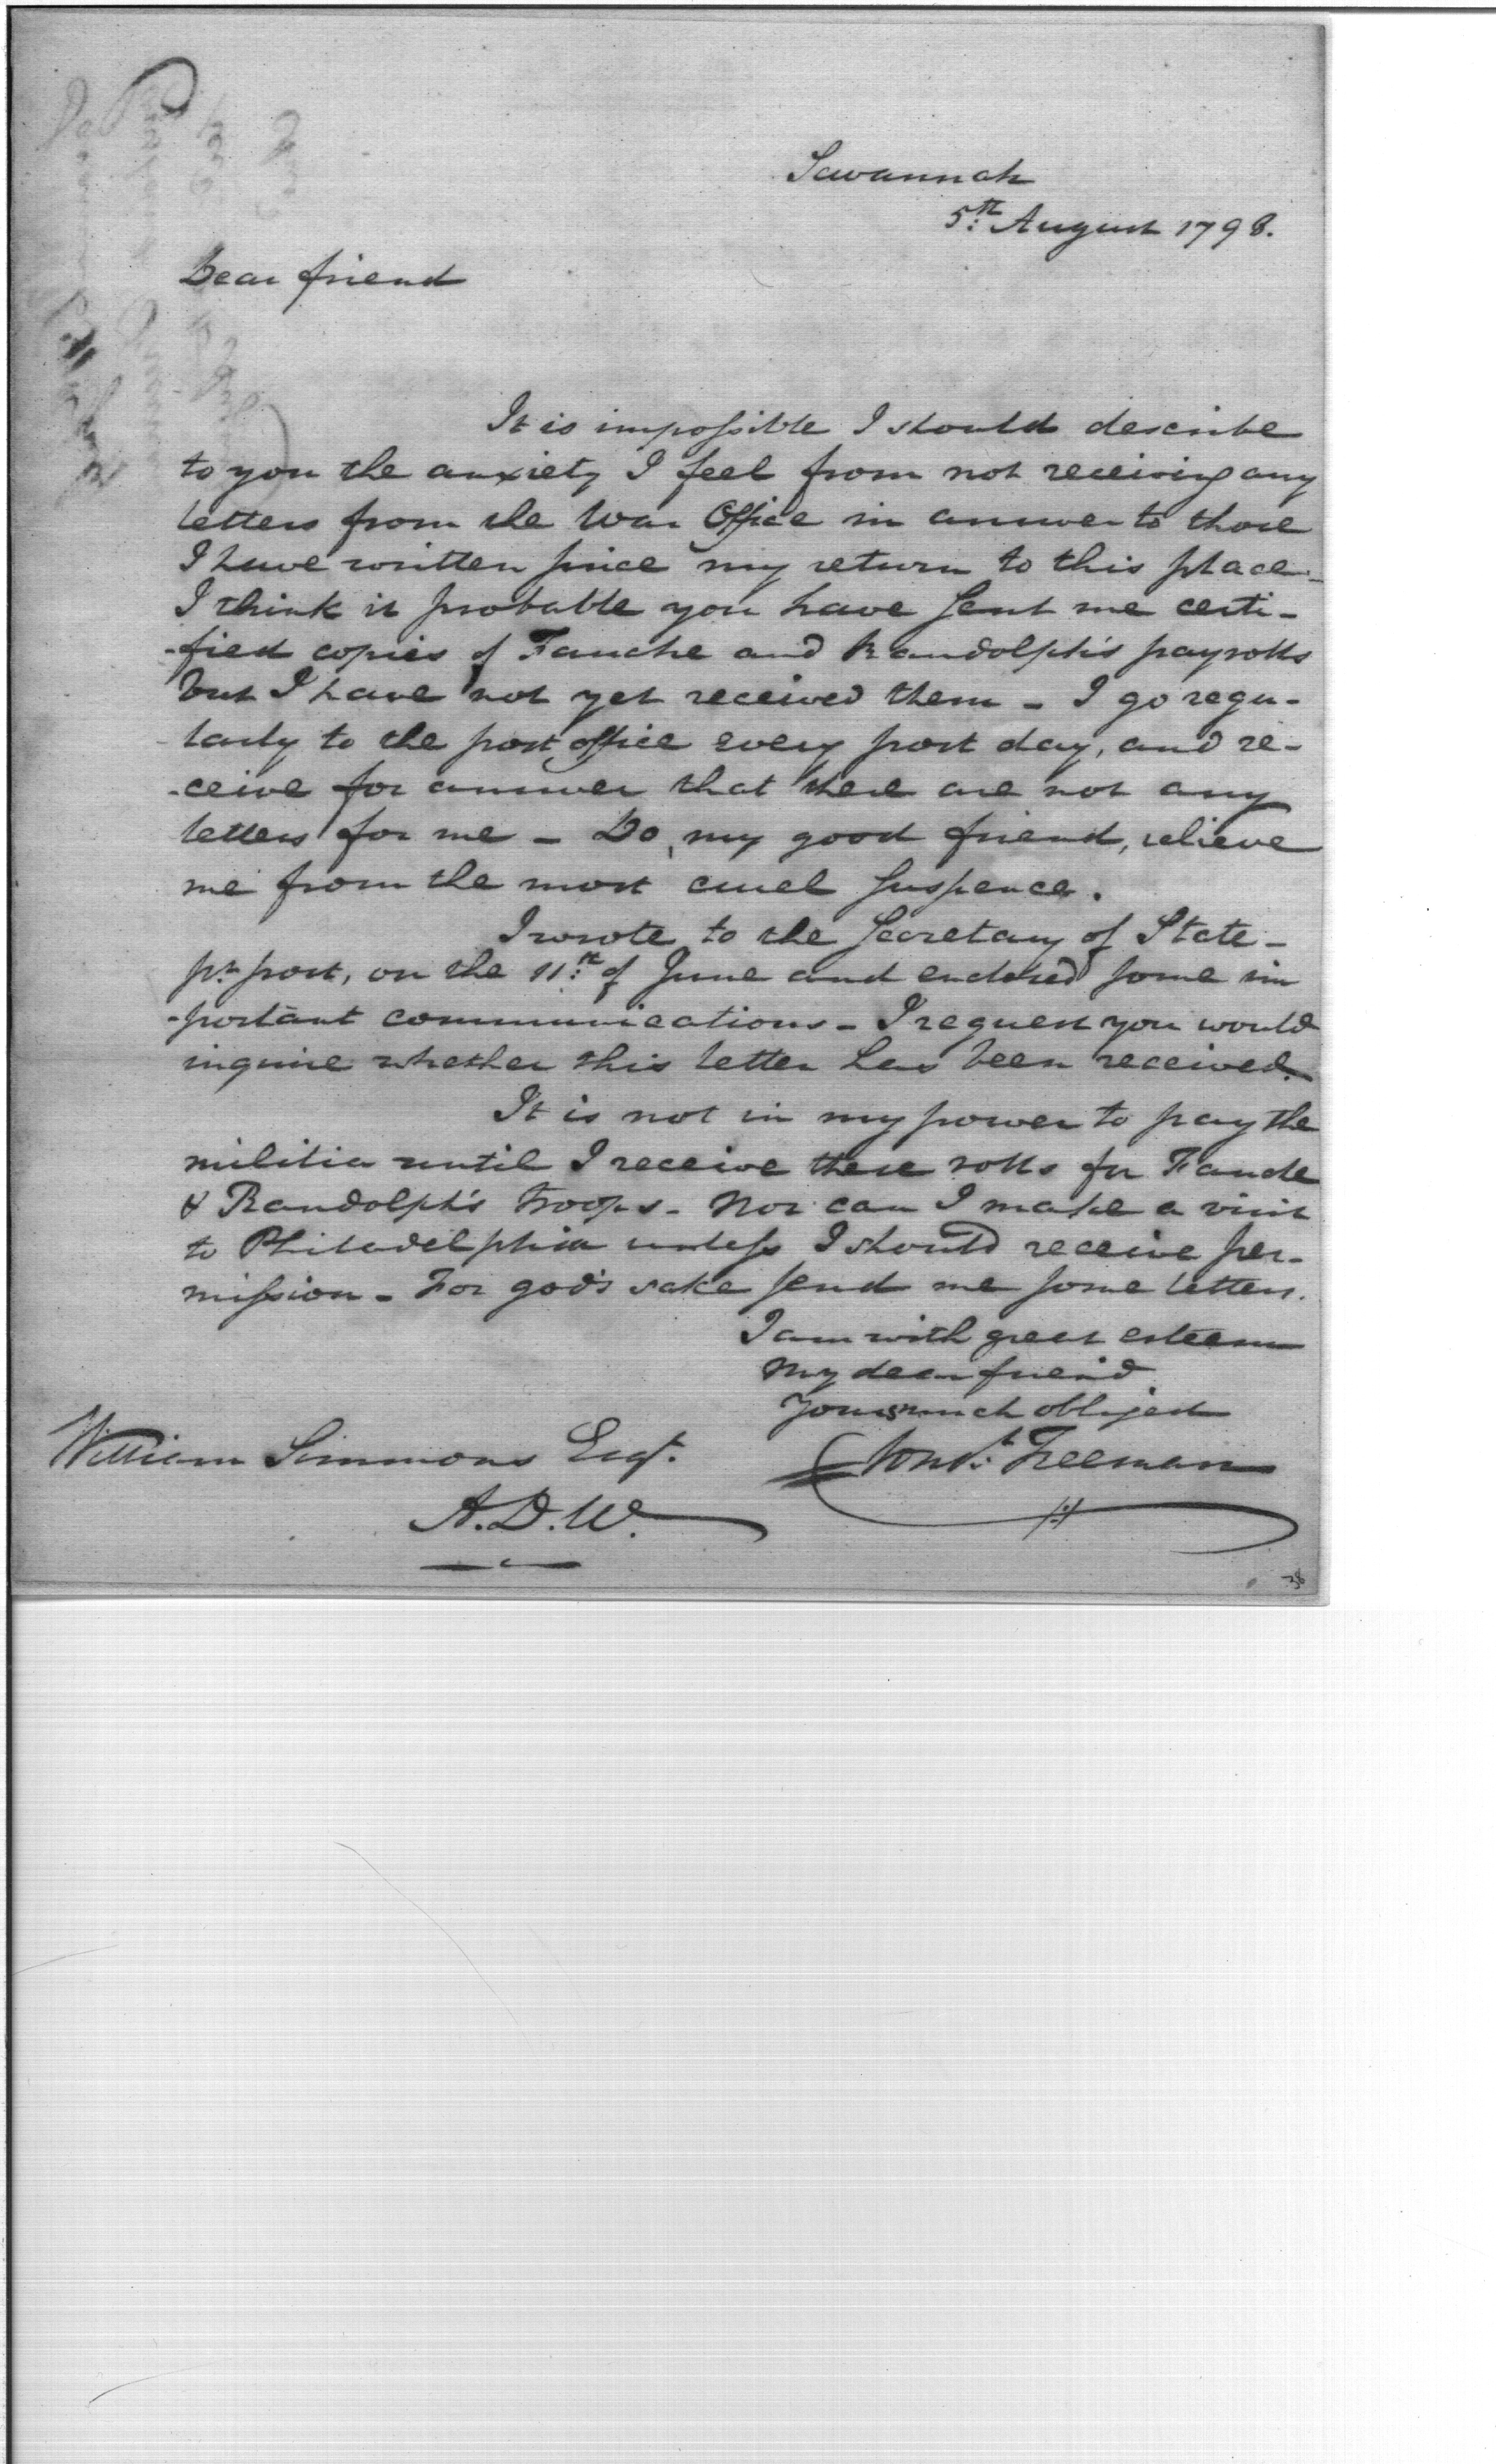 Savannah
5th: August 1798.
Dear friend
It is impossible I should describe
to you the anxiety I feel from not receiving any
letters from the War Office in answer to those
I have written since my return to this place –
I think it probable you have sent me certi-
-fied copies of Fauche and Randolph's payrolls
but I have not yet received them – I go regu-
larly to the post office every post day, and re-
-ceive for answer that there are not any
letters for me – Do, my good friend, relieve
me from the most cruel suspence.
I wrote to the Secretary of State –
pr. post, on the 11th: of June and enclosed some im
-portant communications – I request you would
inquire whether this letter has been received.
It is not in my power to pay the
militia until I receive these rolls for Fauche
& Randolph's troops – Nor can I make a visit
to Philadelphia unless I should receive per-
mission – For god's sake send me some letters.
I am with great esteem
My dear friend
Yours much obliged
Const: Freeman
William Simmons Esqr.
A.D.W.
38